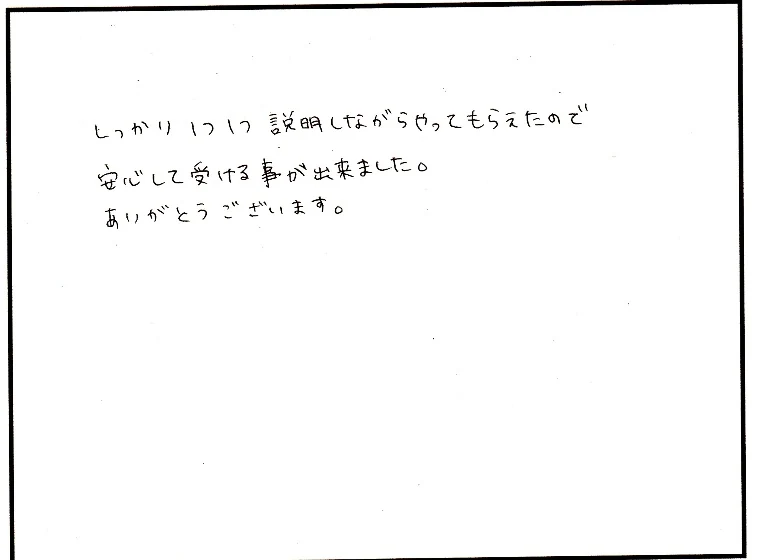 しっかり1つ1つ説明しながらやってもらえたので
安心して受ける事が出来ました。
ありがとうございます。